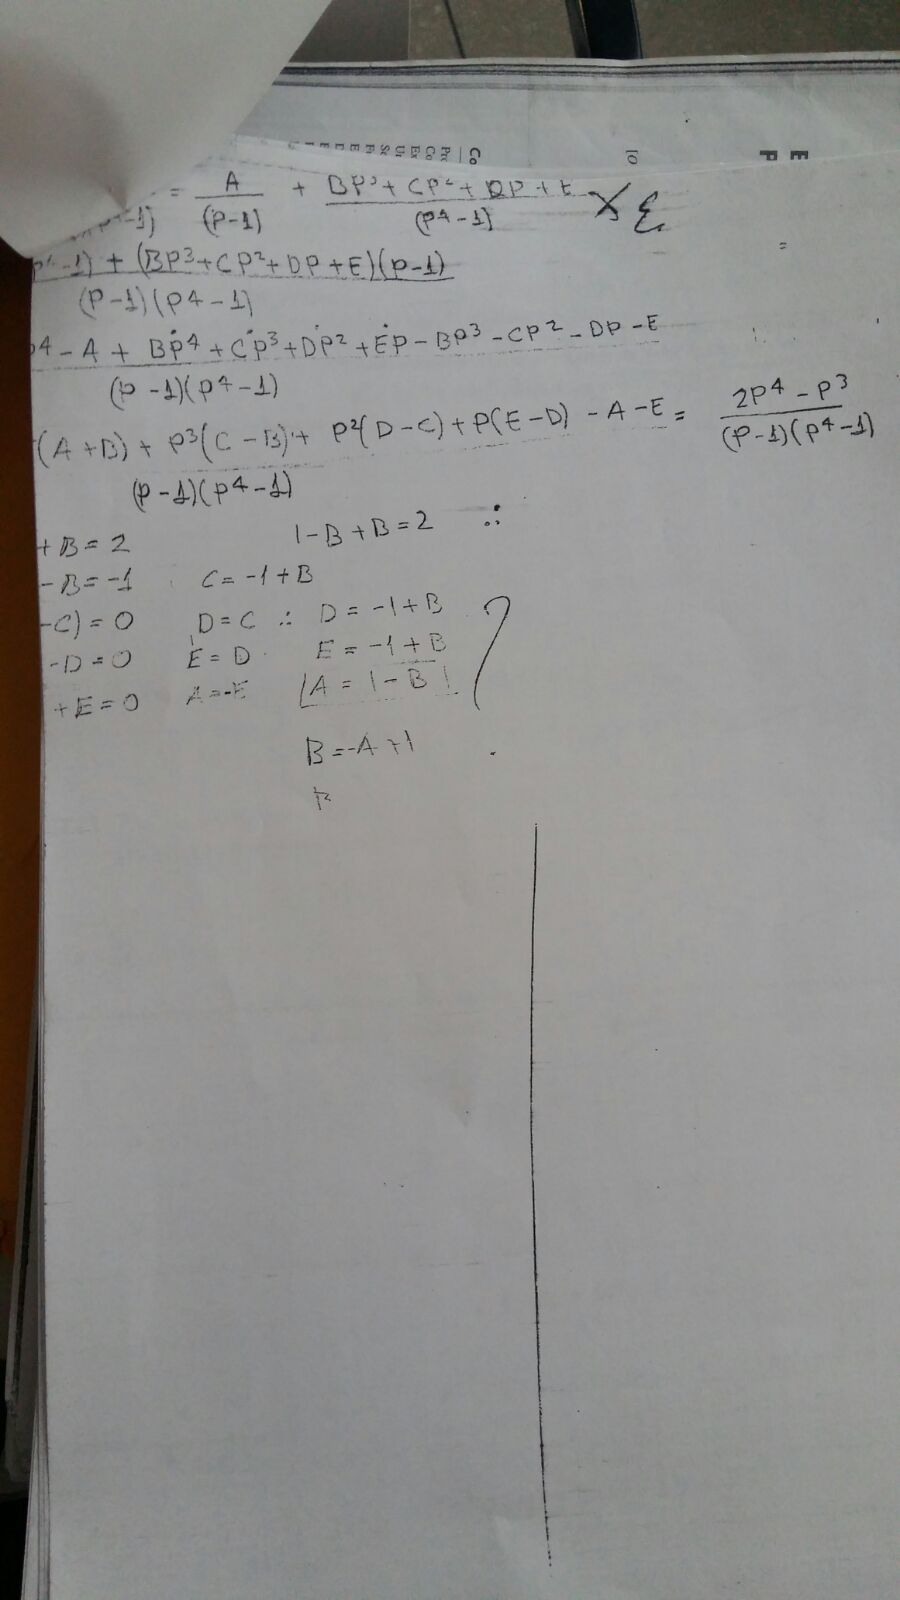 = A/(P-1) + BP³ + CP² + DP + E/(P4-1)
+ (BP3+CP2+DP+E)(P-1)
(P-1)(P4-1)
4 - A + BP4 + CP3 + DP2 + EP - BP3 - CP2 - DP - E
(P-1)(P4-1)
(A+B) + P3(C-B) + P2(D-C) + P(E-D) - A - E = 2P4 - P3/(P-1)(P4-1)
(P-1)(P4-1)
+B=2 1-B+B=2 ∴
-B=-1 C=-1+B
-C)=0 D=C ∴ D=-1+B
-D=0 E=D E=-1+B ?
+E=0 A=-E A=1-B
B=-A+1